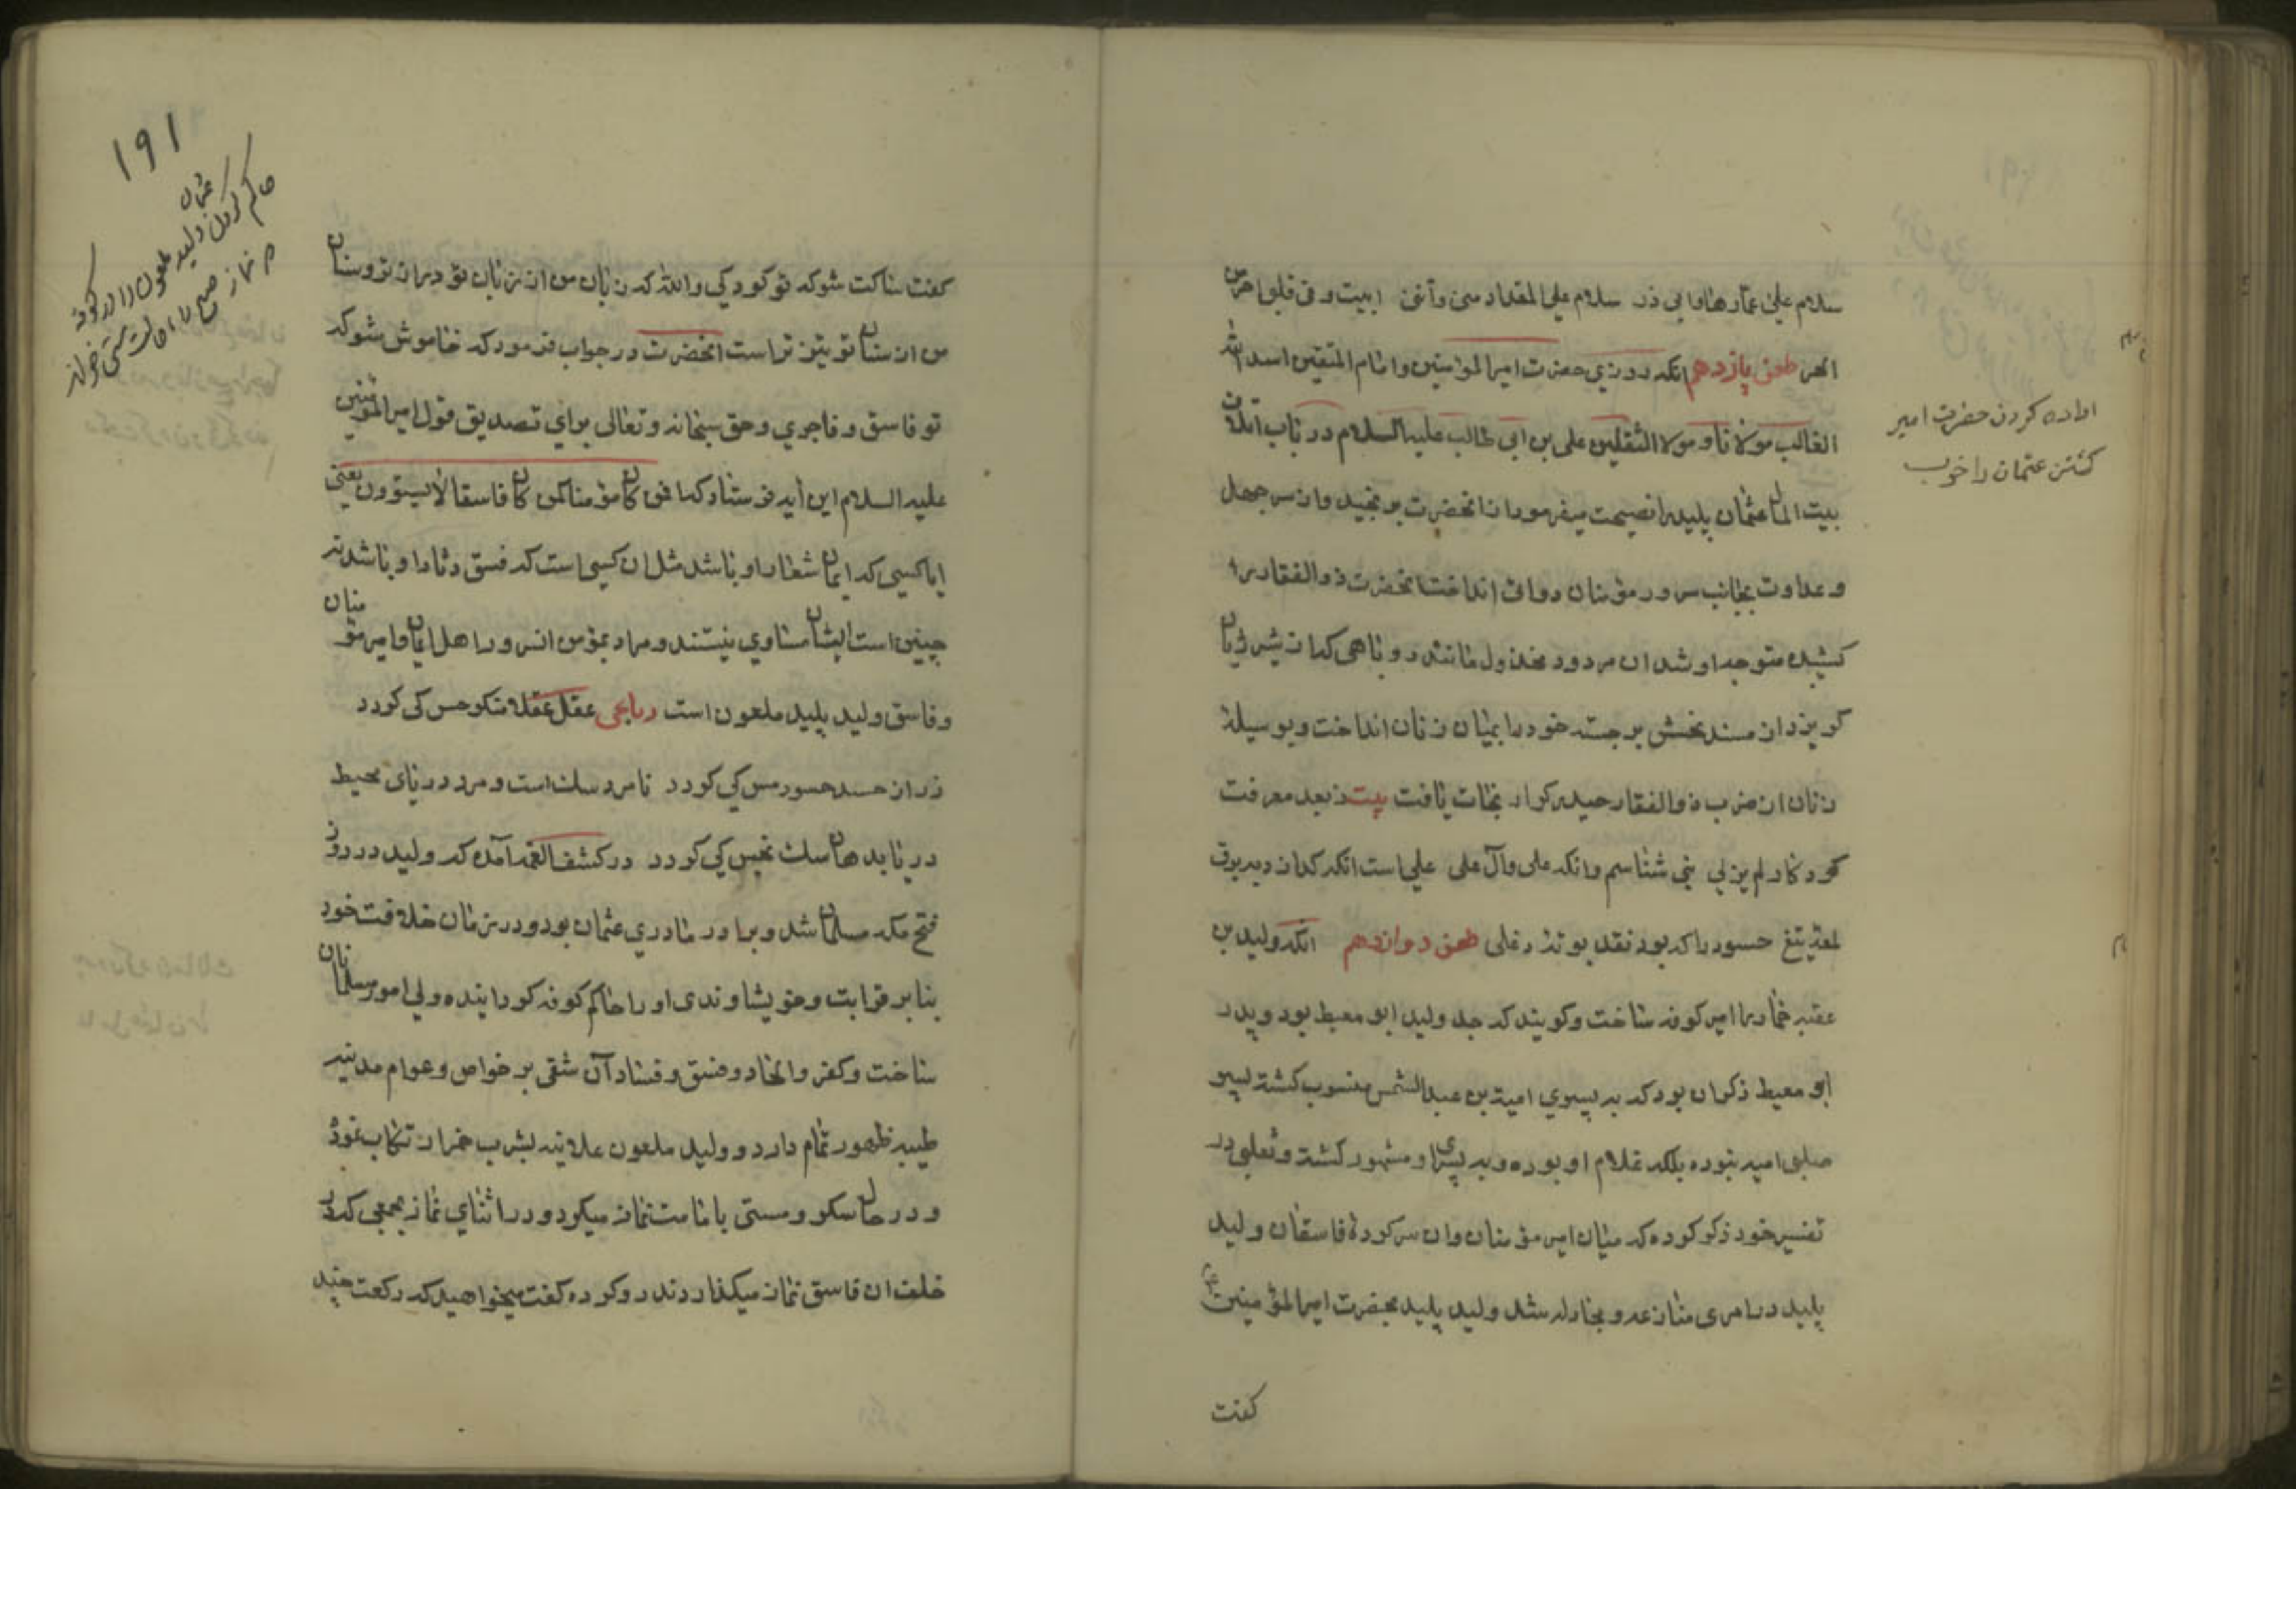 سلام علی عمارها و ابی ذر سلام علی المقداد منی وأنفی
الحر طعن یازدهم انکه روزی حضرت امیر المؤمنین و امام المتقین اسد الله
الغالب مولانا و مولا الثقلین علی بن ابی طالب علیه السلام در باب اتلاف
بیت المال عثمان پلید را نصیحت میفرمود از انحضرت برنجید و از سر جهل
و عداوت بجانب سرور مؤمنان دوات انداخت انحضرت ذوالفقار را
کشیده متوجه او شد ان مردود مخذول مانند روباهی که از شیر ژیان
کریزد از مسند نحسش برجسته خود را بمیان زنان انداخت و بوسیله
زنان از ضرب ذوالفقار حیدر کرار نجات یافت بیت ز بعد معرفت
کردکار لم یزلی نمی شناسم و انکه علی وآل علی علی است انکه که از
تیغ حسود را که بود نقد بوتر دغلی طعن دوازدهم انکه ولید بن
عقبه خمار را امیر کوفه ساخت و کویند که جد ولید ابو معیط بود و پدر
ابو معیط ذکوان بود که به پسری امیة بن عبد الشمس منسوب کشته پسر
صلبی امیه نبوده بلکه غلام او بوده و به پسری او مشهور کشته و ثعلبی در
تفسیر خود ذکر کرده که میان امیر مؤمنان و ان سرکردهٔ فاسقان ولید
پلید در امری منازعه و مجادله شد ولید پلید بحضرت امیر المؤمنین ع
کفت
اراده کردن حضرت امیر
کشتن عثمان را خوب
۱۹۱
حاکم کردن عثمان ولید ملعون را در کوفه
نماز صبح را
کفت ساکت شو که تو کودکی والله که زبان من از زبان تو و سنان
من از سنان تو تیزتر است انحضرت در جواب فرمود که خاموش شو که
تو فاسق و فاجری و حق سبحانه و تعالی برای تصدیق قول امیر المؤمنین
علیه السلام این آیه فرستاد که افمن کان مؤمنا کمن کان فاسقا لا یستوون یعنی
ایا کسی که ایمان شعار او باشد مثل ان کسی است که فسق دثار او باشد نه
چنین است ایشان مساوی نیستند و مراد بمؤمن انسرور اهل ایمان و امیر مؤمنان
و فاسق ولید پلید ملعون است رباعی عقل عقلا منکر حس کی کردد
زر از حسد حسود مس کی کردد نامرد سک است و مرد دریای محیط
دریا بدهان سک نجس کی کردد در کشف الغمه آمده که ولید در روز
فتح مکه مسلمان شد و برادر مادری عثمان بود و در زمان خلافت خود
بنا بر قرابت و خویشاوندی او را حاکم کوفه کردانیده ولی امور مسلمانان
ساخت و کفر و الحاد و فسق و فساد آن شقی بر خواص و عوام مدینه
طیبه ظهور تمام دارد و ولید ملعون علانیه بشرب خمر ارتکاب نمود
و در حال سکر و مستی بامامت نماز میکرد و در اثنای نماز بجمعی که در
خلف ان فاسق نماز میکذاردند رو کرده کفت میخواهید که رکعت چند